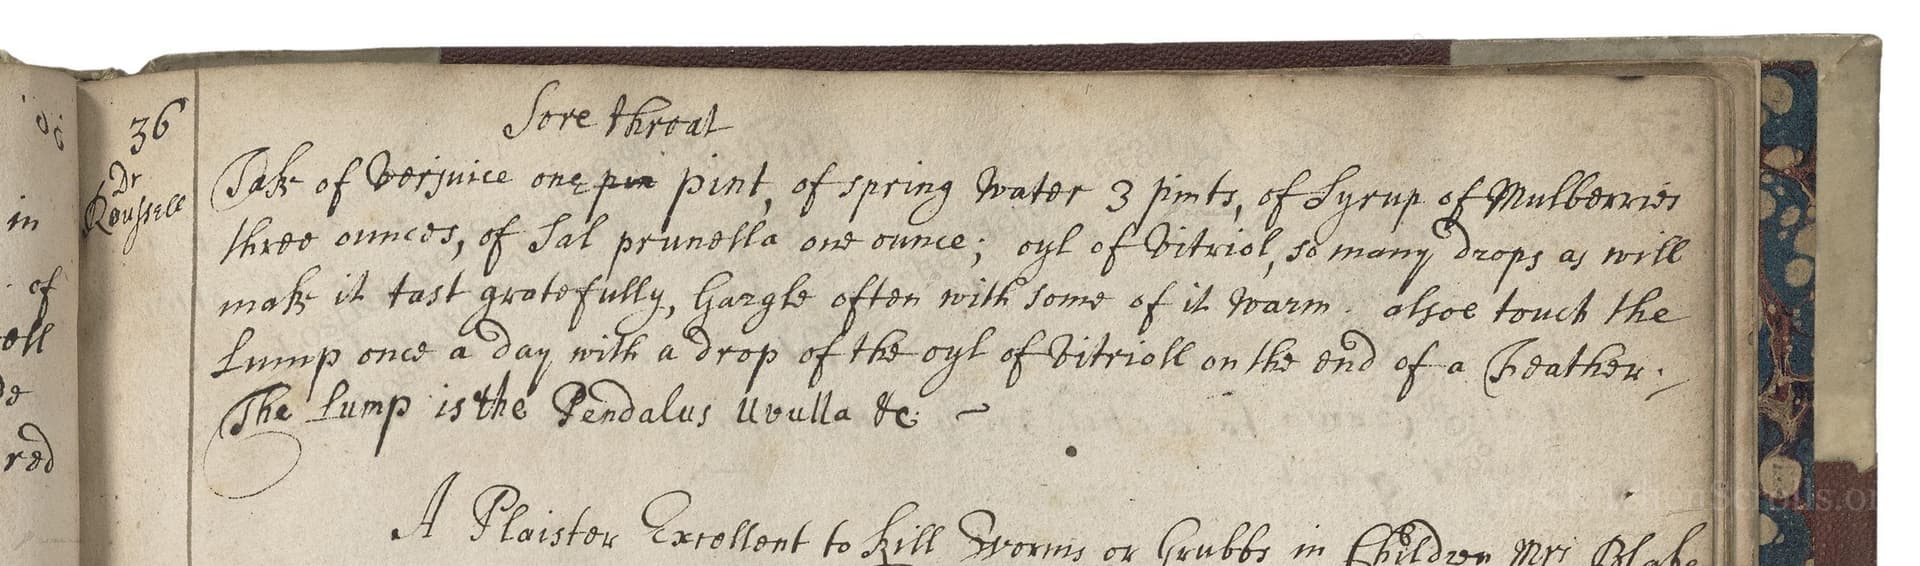 36
Dr
Roussell
Sore throat
Take of Verjuice one pin pint, of spring water 3 pints, of Syrup of Mulberries
three ounces, of Sal prunella one ounce; oyl of Vitriol, so many drops as will
make it tast gratefully, Gargle often with some of it warm. alsoe touch the
Lump once a day with a drop of the oyl of Vitrioll on the end of a Feather.
The Lump is the Pendalus Uvulla &c:
A Plaister Excellent to kill Worms or Grubbs in Children Mrs Blake
in
of
ell
red